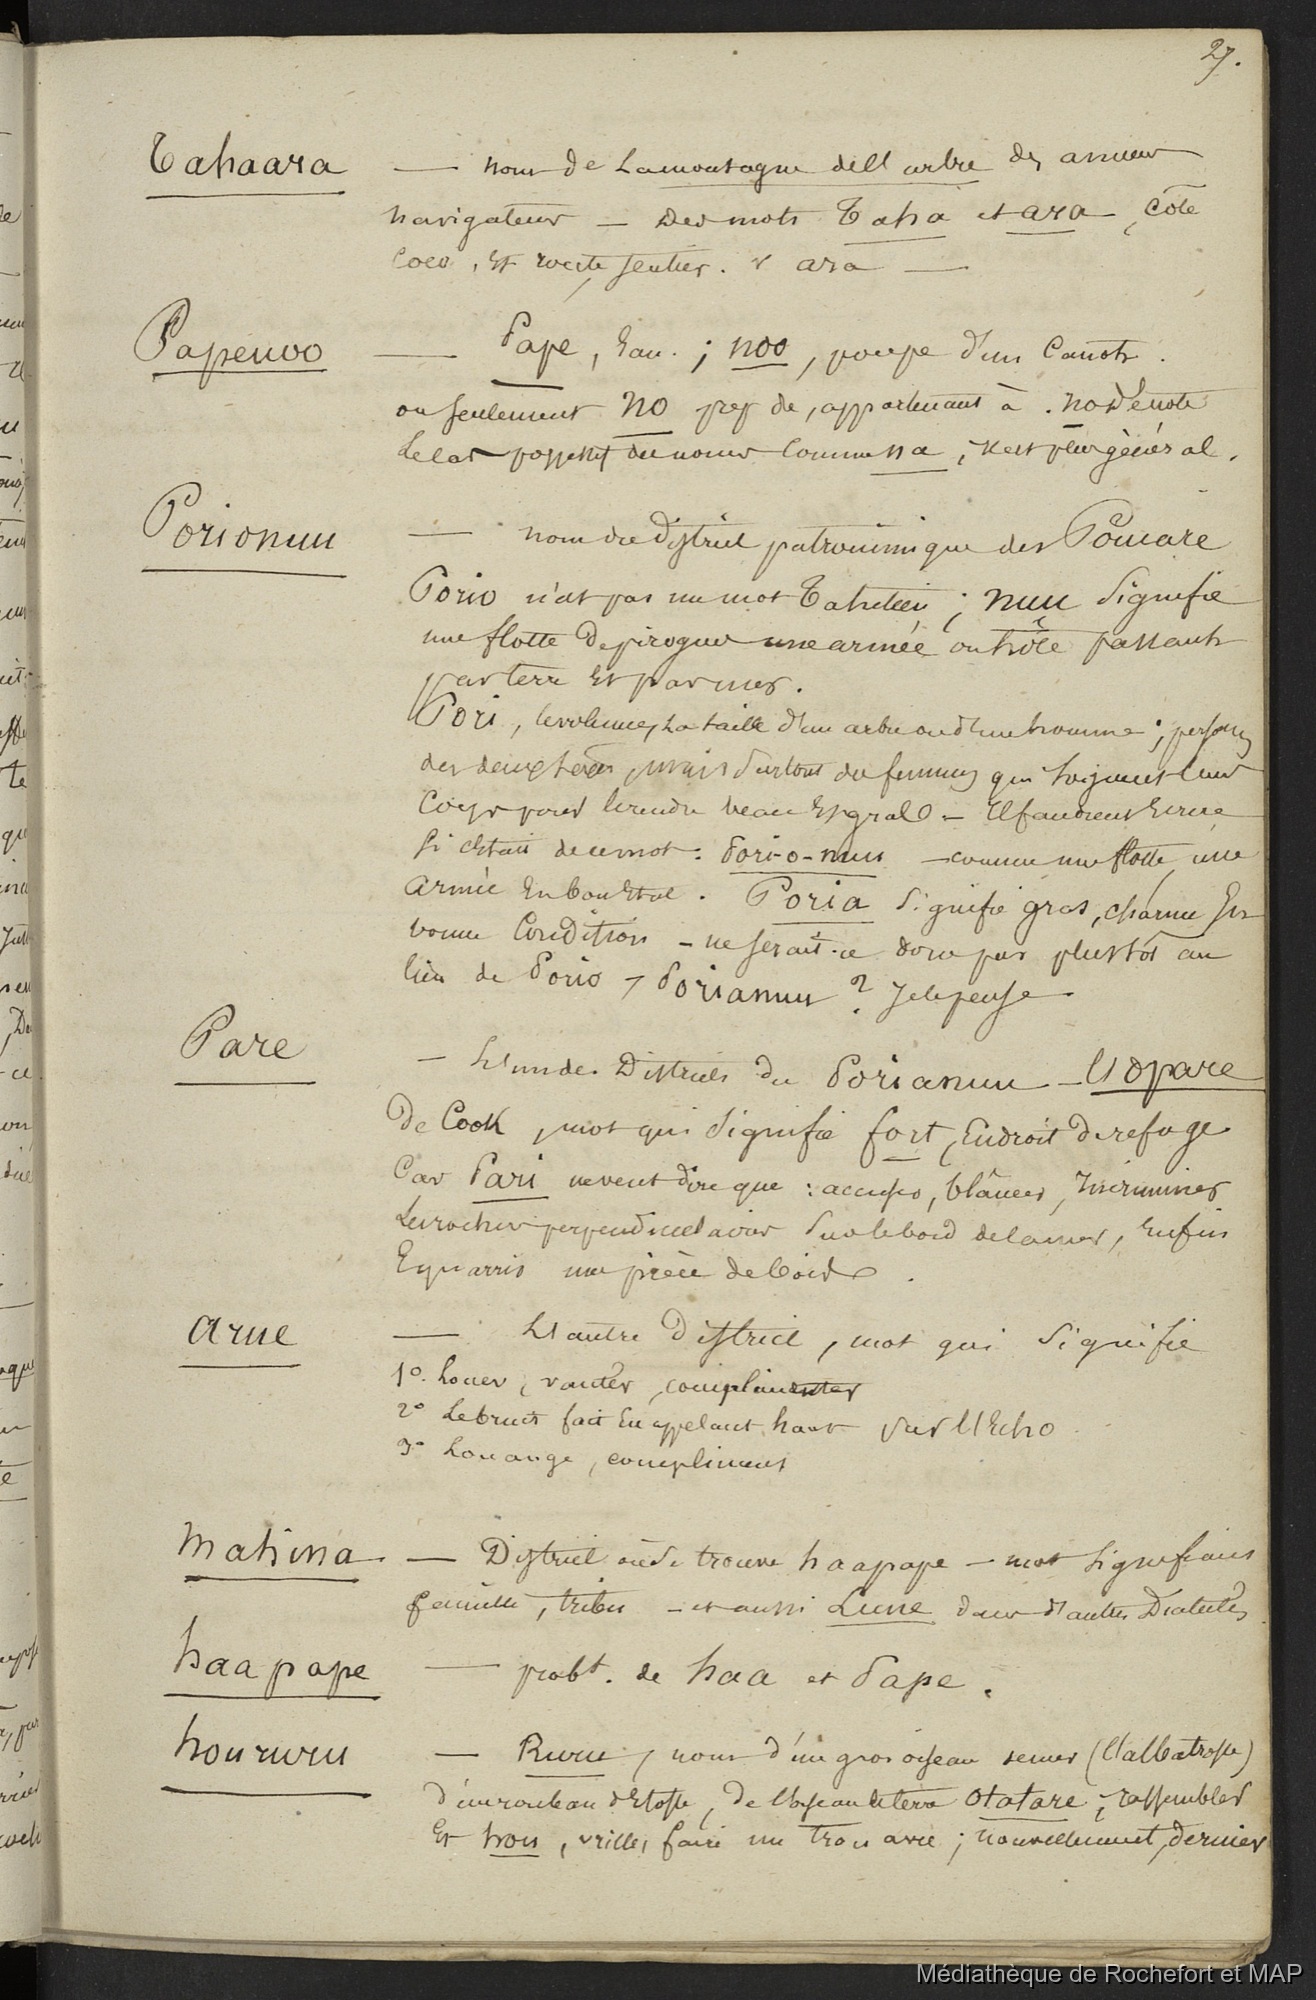 27.
Tahaara — nom de la montagne de l'arbre des anciens
navigateurs — des mots Taha et ara, côté
coco, et route, sentier. ara —
Papenoo — Pape, Eau. ; noo, poupe d'un canot.
ou seulement no prep de, appartenant à. no dénote
le cas possessif du nom comme na, il est plus général.
Porionuu — nom du District patronimique des Pomare
Porio n'est pas un mot Tahitien ; nuu signifie
une flotte de pirogues une armée ou troupe passant
par terre et par mer.
Pori, le volume, la taille d'un arbre ou d'un homme ; persones
des deux sexes, mais surtout des femmes qui soignent leur
corps pour le rendre beau et gras — Il faudrait Ecrire
si c'était de ce mot : Pori-o-nuu — comme une flotte, une
armée en bon Etat. Poria signifie gros, charnu En
bonne Condition — ne serait-ce donc pas plustôt au
lieu de Porio, Porianuu ? Je le pense
Pare — L'un des Districts du Porianuu — l'Opare
de Cook, mot qui signifie fort, Endroit de refuge
Car Pari ne veut dire que : accuser, blâmer, incriminer
Les rochers perpendiculaires sur le bord de la mer, enfin
Equarrir une pièce de bois.
Arue — L'autre District, mot qui signifie
1° Louer, vanter, complimenter
2° Le bruit fait En appelant haut par l'Echo
3° Louange, compliment
Mahina — District où se trouve haapape — mot signifiant
famille, tribu — et aussi Lune dans d'autres Dialectes
haapape — probt. de haa et Pape.
houruru — Ruru, nom d'un gros oiseau de mer (l'albatrosse)
d'un rouleau d'Etoffe, de l'oiseau otatare, rassembler
Et hou, vriller, faire un trou avec ; nouvellement, dernier
Médiathèque de Rochefort et MAP